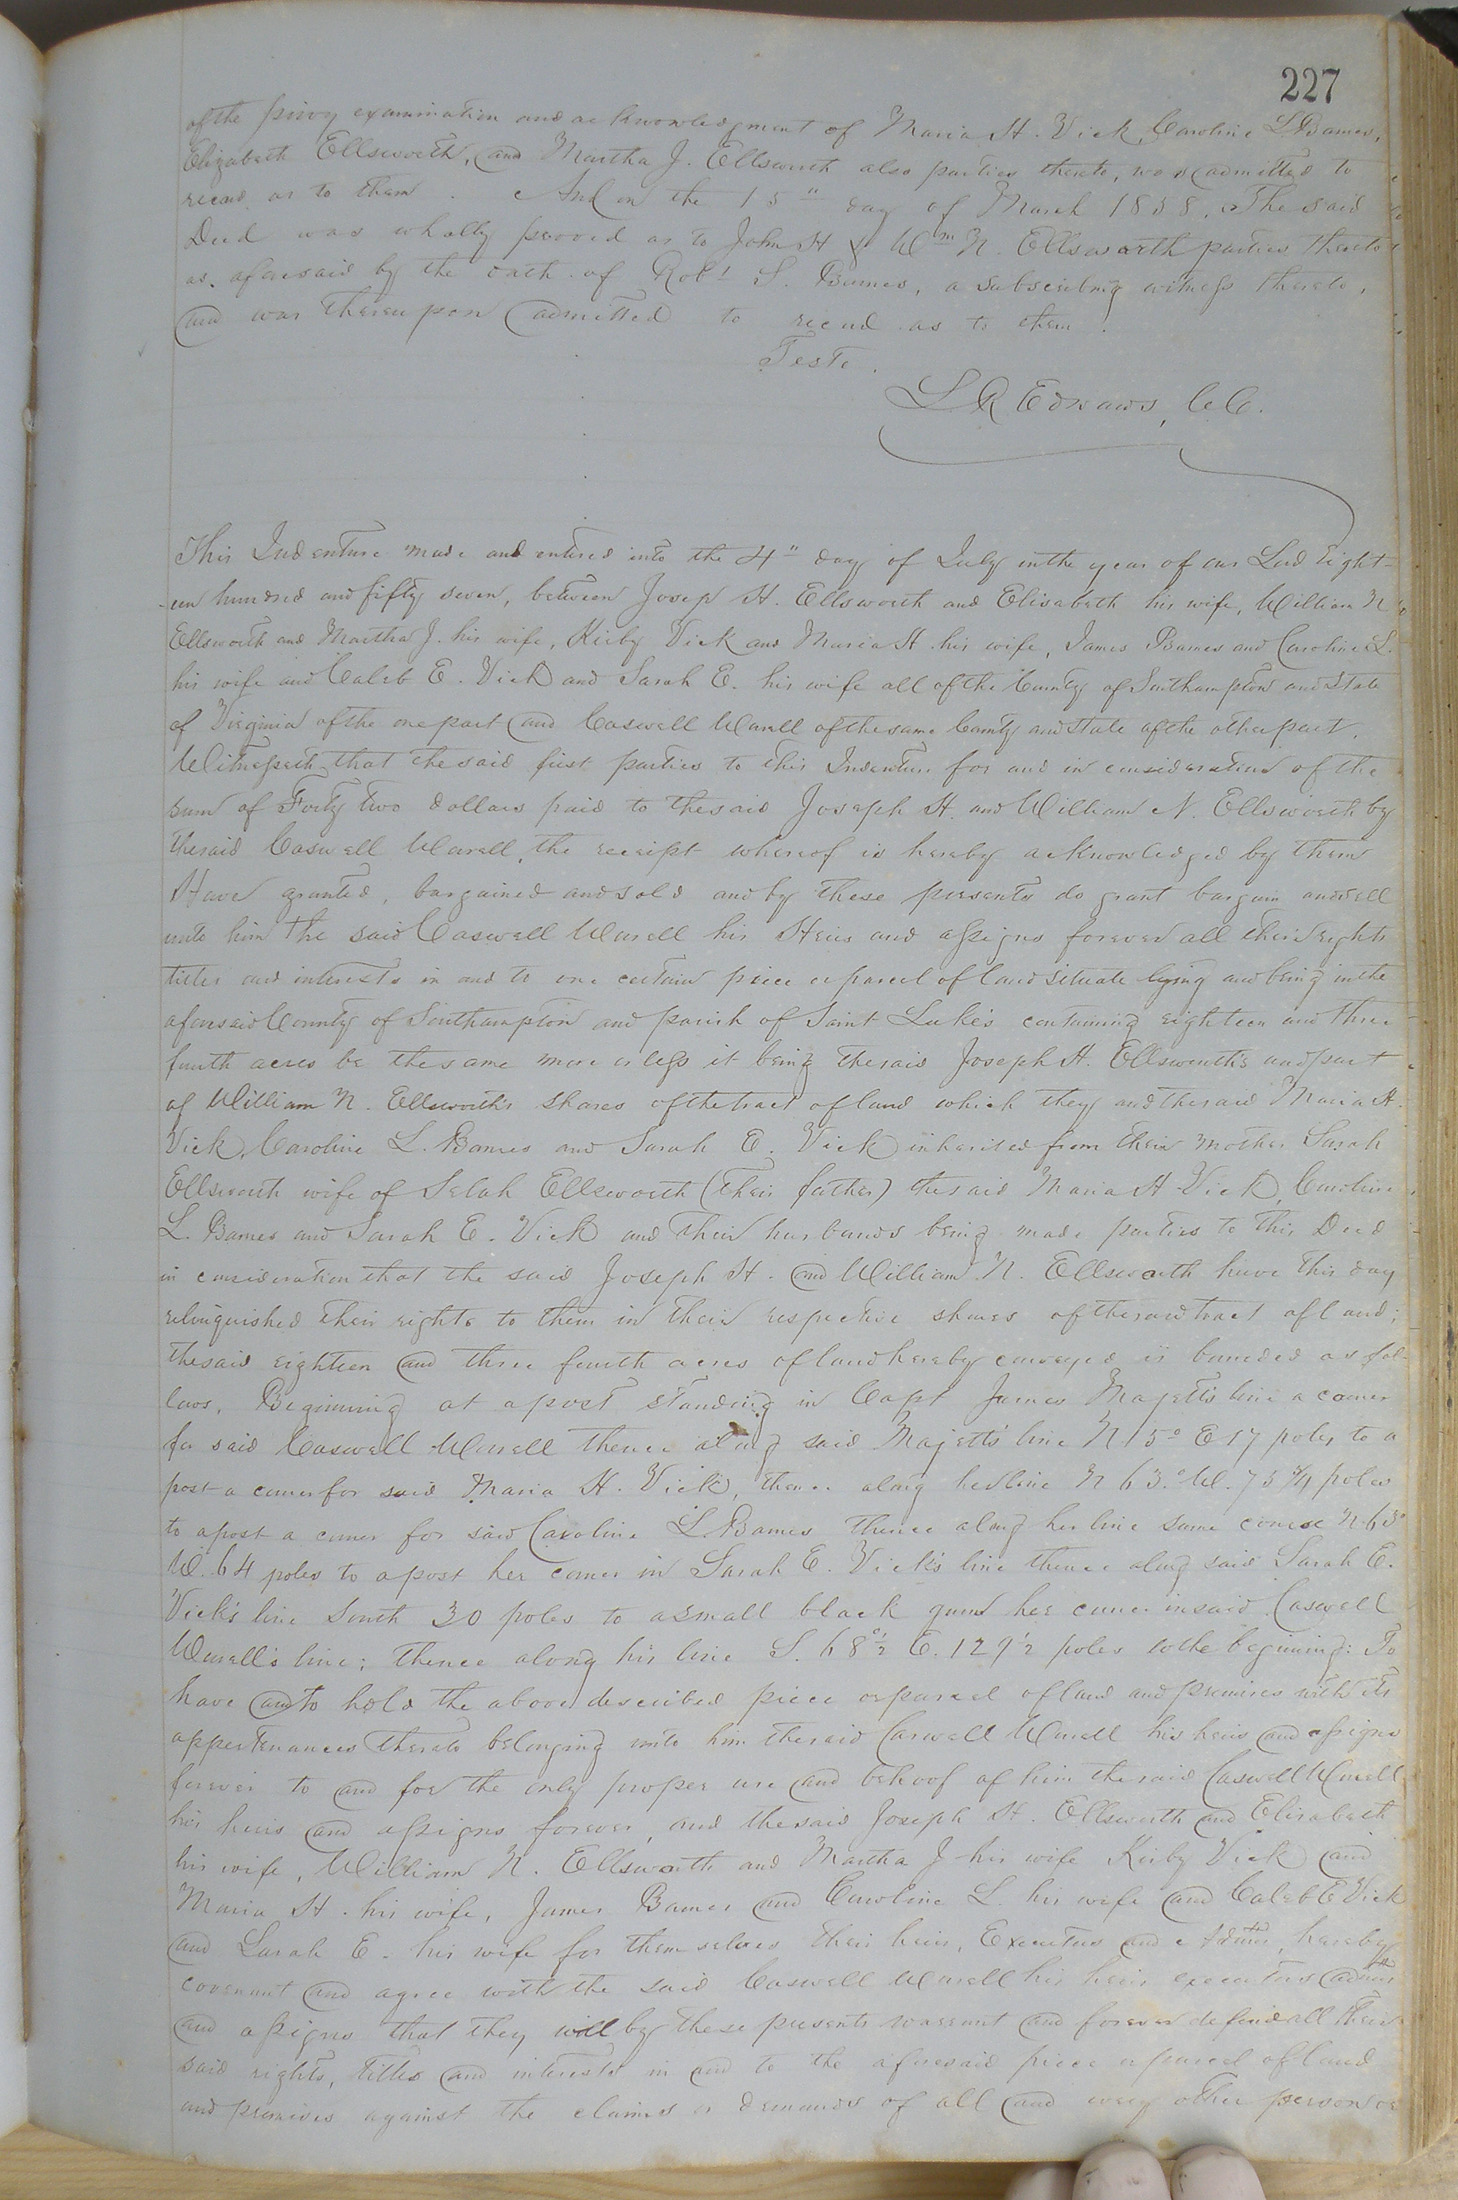 227
of the privy examination and acknowledgment of Maria H. Vick, Caroline L. Barnes,
Elizabeth Ellsworth, and Martha J. Ellsworth also parties thereto, was admitted to
record as to them. And on the 15" day of March 1858. The said
Deed was wholly proved as to John H & Wm N. Ellsworth parties thereto
as aforesaid by the oath of Robt S. Barnes, a subscribing witness thereto,
and was thereupon admitted to record as to them.
Teste.
L R Edwards, C C.
This Indenture made and entered into the 4" day of July in the year of our Lord Eight-
-een hundred and fifty seven, between Josep H. Ellsworth and Elisabeth his wife, William N
Ellsworth and Martha J. his wife, Kirby Vick and Maria H. his wife, James Barnes and Caroline L.
his wife and Caleb E. Vick and Sarah E. his wife all of the County of Southampton and State
of Virginia of the one part and Caswell Worrell of the same County and State of the other part.
Witnesseth that the said first parties to this Indenture for and in consideration of the
sum of Forty two dollars paid to the said Joseph H. and William N. Ellsworth by
the said Caswell Worrell, the receipt whereof is hereby acknowledged by them
Have granted, bargained and sold and by these presents do grant bargain and sell
unto him the said Caswell Worrell his Heirs and assigns forever all their rights
titles and interests in and to one certain piece or parcel of land situate lying and being in the
aforesaid County of Southampton and parish of Saint Luke's containing eighteen and three
fourth acres be the same more or less it being the said Joseph H. Ellsworth's and part
of William N. Ellsworth's shares of the tract of land which they and the said Maria H.
Vick, Caroline L. Barnes and Sarah E. Vick inherited from their mother Sarah
Ellsworth wife of Selah Ellsworth (their father) the said Maria H Vick, Caroline
L. Barnes and Sarah E. Vick and their husbands being made parties to this Deed
in consideration that the said Joseph H. and William N. Ellsworth have this day
relinquished their rights to them in their respective shares of the said tract of land;
the said eighteen and three fourth acres of land hereby conveyed is bounded as fol-
lows, Beginning at a post standing in Capt James Majett's line a corner
for said Caswell Worrell thence along said Majett's line N 15° E 17 poles to a
post a corner for said Maria H. Vick, thence along her line N 63.° W. 73 3/4 poles
to a post a corner for said Caroline L. Barnes thence along her line same course N. 63°
W. 64 poles to a post her corner in Sarah E. Vick's line thence along said Sarah E.
Vick's line South 30 poles to a small black gum her corner in said Caswell
Worrell's line; thence along his line S. 68°½ E. 129½ poles to the beginning: To
have and to hold the above described piece or parcel of land and premises with its
appertenances thereto belonging unto him the said Caswell Worrell his heirs and assigns
forever to and for the only proper use and behoof of him the said Caswell Worrell
his heirs and assigns forever, and the said Joseph H. Ellsworth and Elisabeth
his wife, William N. Ellsworth and Martha J his wife Kirby Vick and
Maria H. his wife, James Barnes and Caroline L. his wife and Caleb E Vick
and Sarah E. his wife for themselves their heirs, Executors and Admrs, hereby
covenant and agree with the said Caswell Worrell his heirs executors admrs
and assigns that they will by these presents warrant and forever defend all their
said rights, titles and interests in and to the aforesaid piece or parcel of land
and premises against the claims or demands of all and every other person or